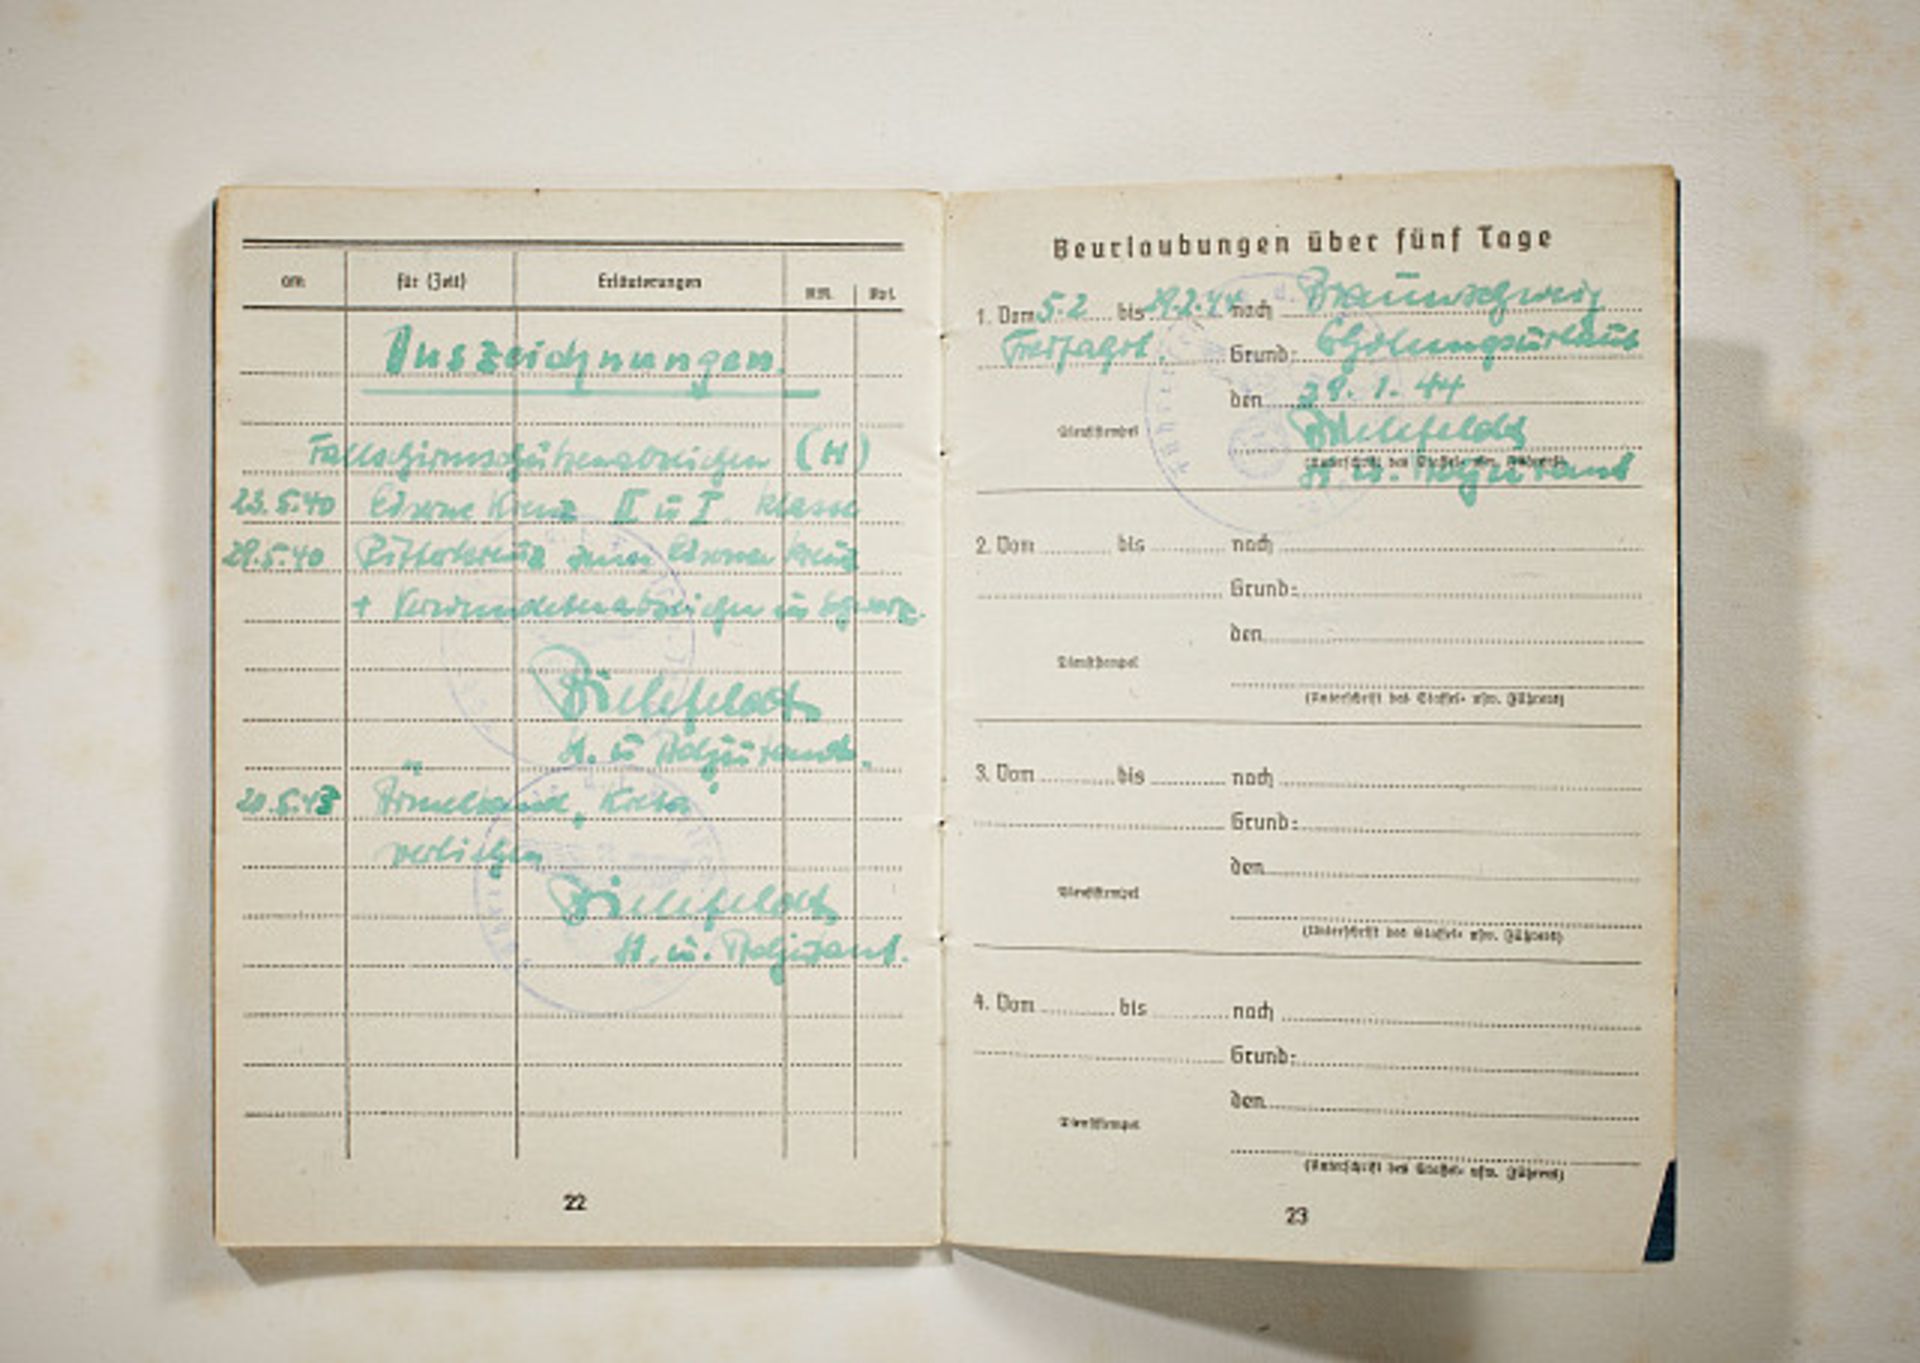 am für (Zeit) Erläuterungen RM. Rpf.
Auszeichnungen.
Fallschirmschützenabzeichen (H)
23.5.40 Eiserne Kreuz II u I. Klasse
29.5.40 Ritterkreuz zum Eisernen Kreuz
+ Verwundetenabzeichen in schwarz.
Bielefeldt
u. Adjutant.
20.5.43 Ärmelband, Kreta
verliehen
Bielefeldt
u. Adjutant.
22
Beurlaubungen über fünf Tage
1. Vom 5.2 bis 29.2.44 nach Braunschweig
Freifahrt. Grund: Erholungsurlaub
den 29.1.44
Dienststempel Bielefeldt
(Unterschrift des Staffel- usw. Führers)
u. Adjutant
2. Vom bis nach
Grund:
den
Dienststempel
(Unterschrift des Staffel- usw. Führers)
3. Vom bis nach
Grund:
den
Dienststempel
(Unterschrift des Staffel- usw. Führers)
4. Vom bis nach
Grund:
den
Dienststempel
(Unterschrift des Staffel- usw. Führers)
23